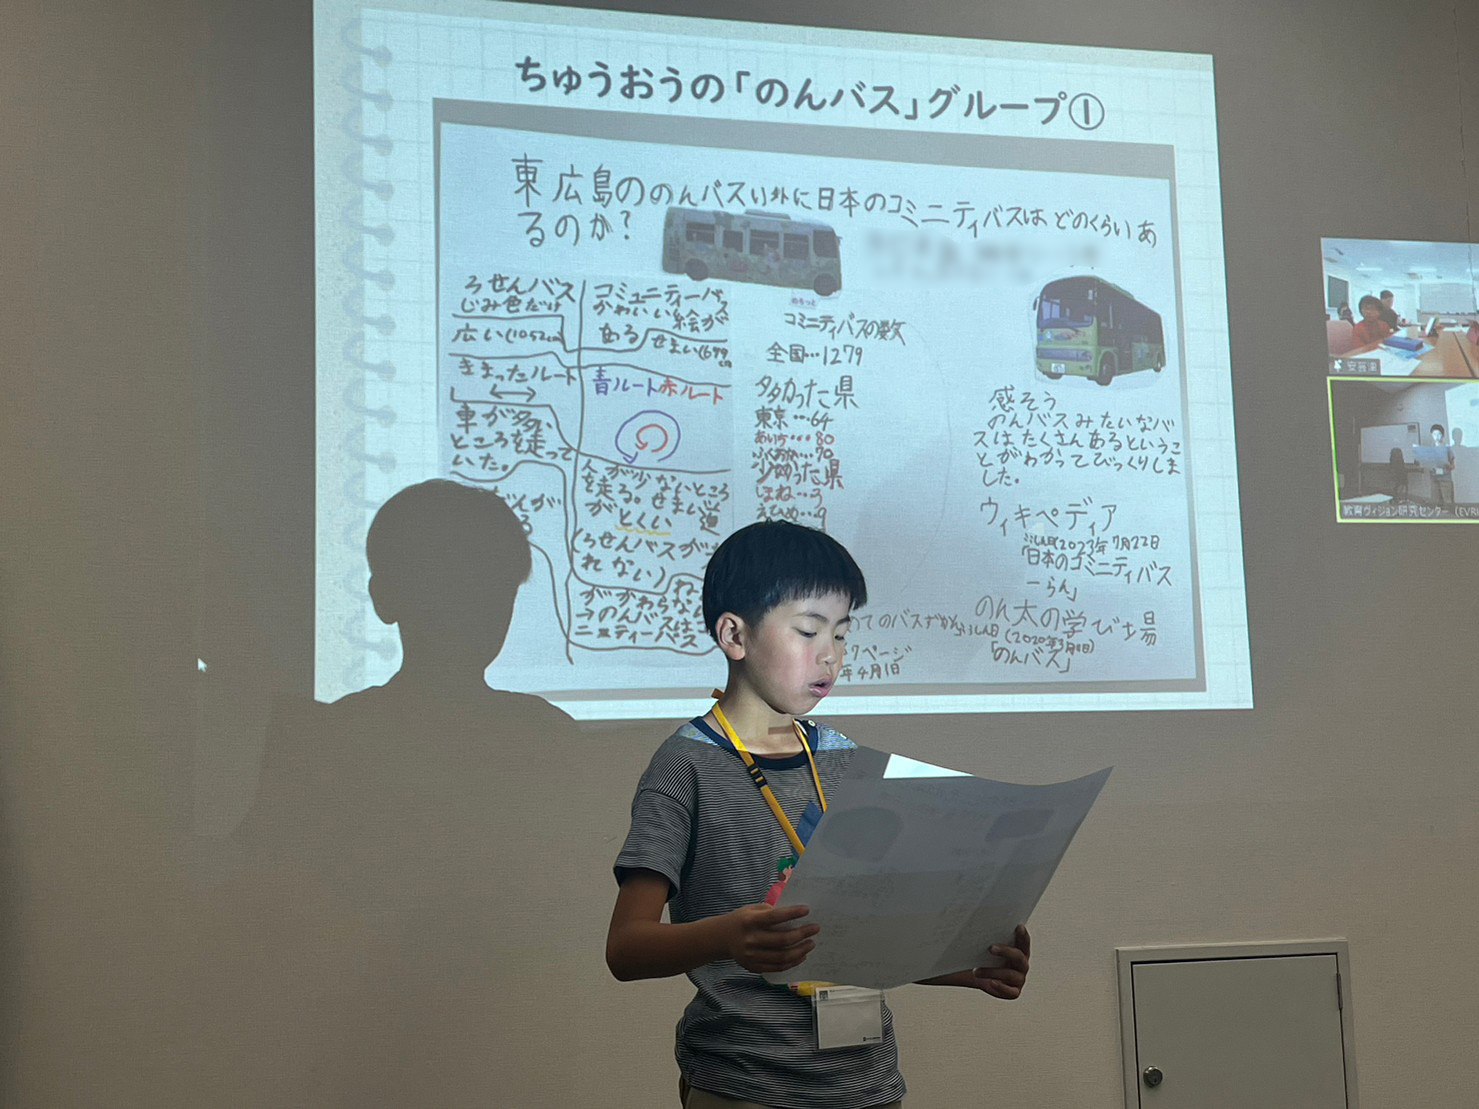 ちゅうおうの「のんバス」グループ①
東広島ののんバスい外に日本のコミニティバスはどのくらいあ
るのか？
ろせんバス
じみ色だけ
広い(1052cm
きまったルート
車が多い
ところを走って
いた。
コミュニティーバス
かわいい絵が
ある
せまい(699
cm
青ルート赤ルート
人が少ないところ
を走る。せまい道
がとくい
(ろせんバスが
れない)
がかわらない
つのんバスはコ
ニュティーバス
のもっと
コミニティバスの数
全国…1279
多かった県
東京…64
あいち…80
ふくおか…70
少なかった県
しまね…3
えひめ…9
感そう
のんバスみたいなバ
スはたくさんあるというこ
とがわかってびっくりしま
した。
ウィキペディア
2023年7月22日
「日本のコミニティバス
一らん」
のん太の学び場
「のんバス」
てのバスずかん
クページ
年4月1日
安芸津
教育ヴィジョン研究センター（EVRI